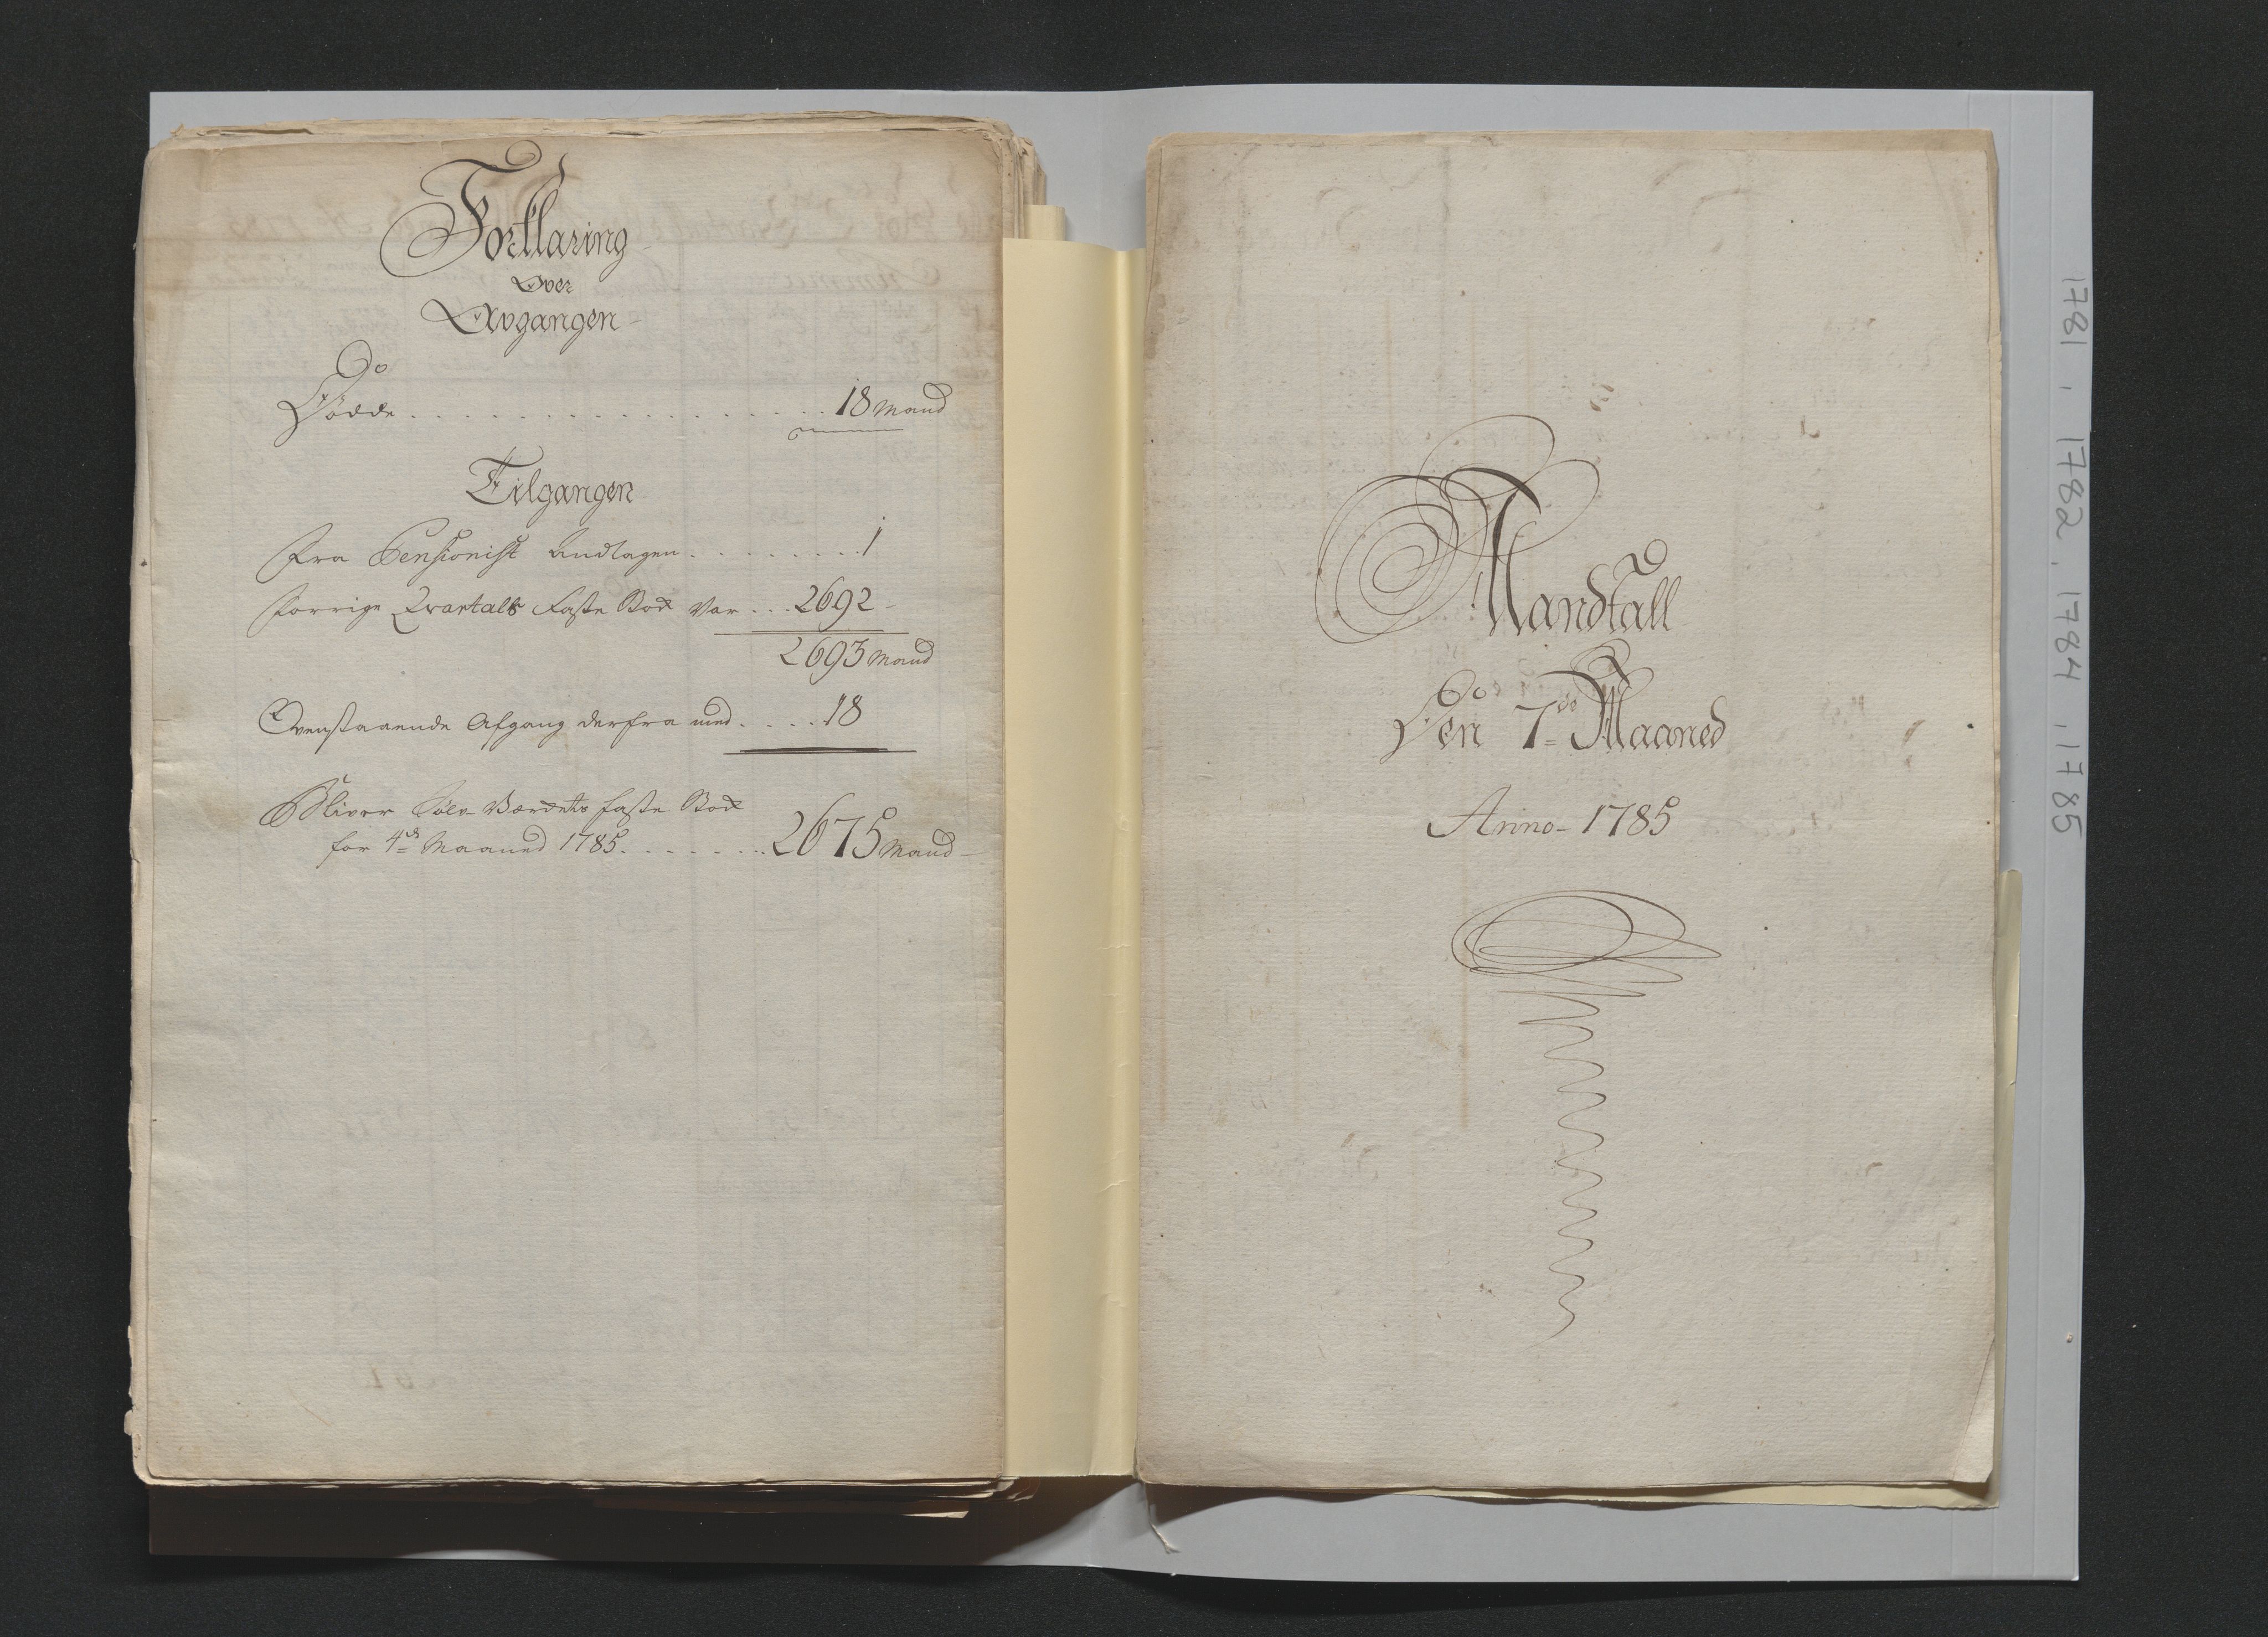 Forklaring
Over
Avgangen
Døde . . . . . . . . . . . . . . . . 18 Mand
Tilgangen
Fra Pensionist Andtagen . . . . . . . . . 1
Forrige Qvartals Faste Stok var . . . 2692
2693 Mand
Ovenstaaende Afgang derfra med . . . . 18
Bliver Sølv-Værkets faste Stok
for 4de Maaned 1785 . . . . . . . 2675 Mand
Mandtall
Den 7de Maaned
Anno 1785
1781, 1782, 1784, 1785